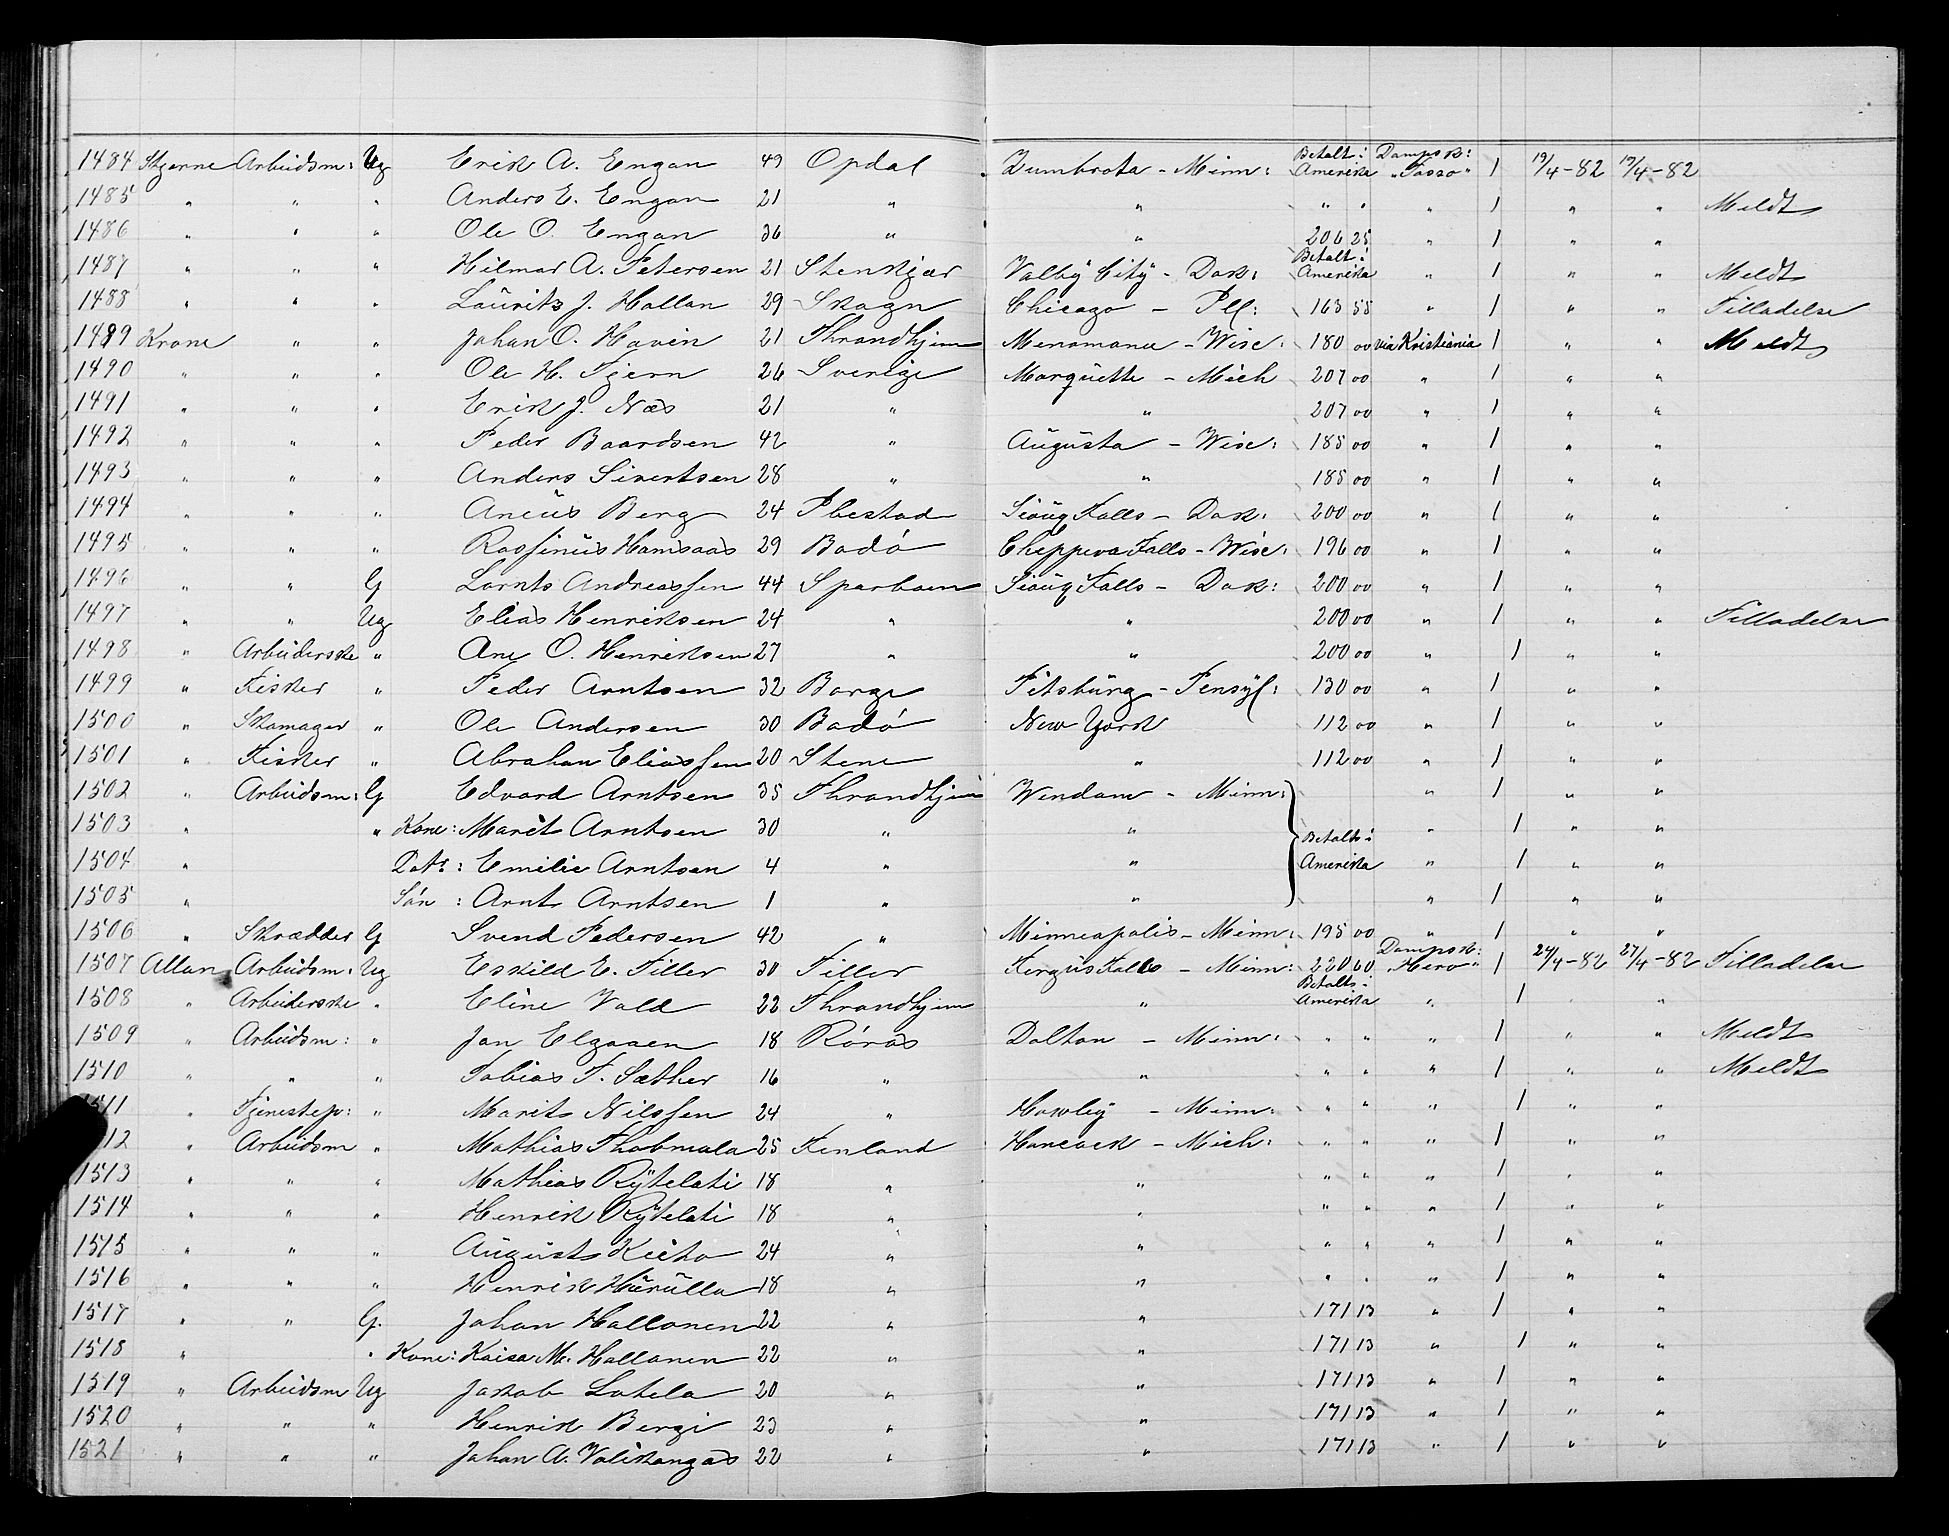 1484 Stjerne Arbeidsm: Ug Erik A. Engan 49 Opdal Zumbrota - Minn: Betalt i Amerika Dampsk: "Tasso" 1 19/4-82 19/4-82
1485 " " " Anders E. Engan 21 " " " " " 1 " " Meldt
1486 " " " Ole O. Engan 36 " " 206 25 " 1 " "
1487 " " " Hilmar A. Petersen 21 Stenkjær Valley City - Dak: Betalt i Amerika " 1 " " Meldt
1488 " " " Laurits J. Hallan 29 Skogn Chicago - Ill: 163 55 " 1 " " Tilladelse
1489 Krone " " Johan O. Havin 21 Throndhjem Menomanie - Wisc: 180 00 via Kristiania 1 " " Meldt
1490 " " " Ole H. Tjern 26 Sverige Marquette - Mich 207 00 " 1 " "
1491 " " " Erik J. Næs 21 " " 207 00 " 1 " "
1492 " " " Peder Baardsen 42 " Augusta - Wisc: 185 00 " 1 " "
1493 " " " Anders Sivertsen 28 " " 185 00 " 1 " "
1494 " " " Aneus Berg 24 Ibestad Sioug Falls - Dak: 200 00 " 1 " "
1495 " " " Rassinus Hansaas 29 Bodö Cheppeva Falls - Wisc: 196 00 " 1 " "
1496 " " G Lornts Andreassen 44 Sparboen Sioug Falls - Dak: 200 00 " 1 " "
1497 " " Ug Elias Henriksen 24 " " 200 00 " 1 " " Tilladelse
1498 " Arbeiderske " Ane O. Henriksen 27 " " 200 00 " 1 " "
1499 " Fisker " Peder Arntsen 32 Borge Pitsburg - Pensyl: 130 00 " 1 " "
1500 " Skomager " Ole Andersen 30 Bodö New York 112 00 " 1 " "
1501 " Fisker " Abraham Eliassen 20 Stene " 112 00 " 1 " "
1502 " Arbeidsm: G Edvard Arntsen 35 Throndhjem Windom - Minn: " 1 " "
1503 " " Kone: Marit Arntsen 30 " " Betalt i " 1 " "
1504 " Dat: : Emilie Arntsen 4 " " Amerika " 1 " "
1505 " Sön : Arnt Arntsen 1 " " " 1 " "
1506 " Skrædder G Svend Pedersen 42 " Minneapolis - Minn: 195 00 " 1 " "
1507 Allan Arbeidsm: Ug Eskild E. Tiller 30 Tiller Fergus Falls - Minn: 220 60 Dampsk: "Hero" 1 27/4-82 27/4-82 Tilladelse
1508 " Arbeiderske " Eline Vald 22 Throndhjem " Betalt i Amerika " 1 " "
1509 " Arbeidsm: " Jon Elgaaen 18 Röros Dalton - Minn: " " " 1 " " Meldt
1510 " " " Tobias T. Sæther 16 " " " " " 1 " " Meldt
1511 " Tjenestep: " Marit Nilssen 24 " Hawley - Minn: " " " 1 " "
12 " Arbeidsm " Mathias Thobmala 25 Finland Hancock - Mich: " " " 1 " "
1513 " " " Mathias Rytelati 18 " " " " " 1 " "
1514 " " " Henrik Rytelati 18 " " " " " 1 " "
1515 " " " August Kieho 24 " " " " " 1 " "
1516 " " " Henrik Hurulla 18 " " " " " 1 " "
1517 " " G. Johan Hallonen 22 " " 171 13 " 1 " "
1518 " " Kone: Kaisa M. Hallanen 22 " " 171 13 " 1 " "
1519 " Arbeidsm Ug Jakob Lotela 20 " " 171 13 " 1 " "
1520 " " " Henrik Bergi 23 " " 171 13 " 1 " "
1521 " " " Johan A. Valikangas 22 " " 171 13 " 1 " "